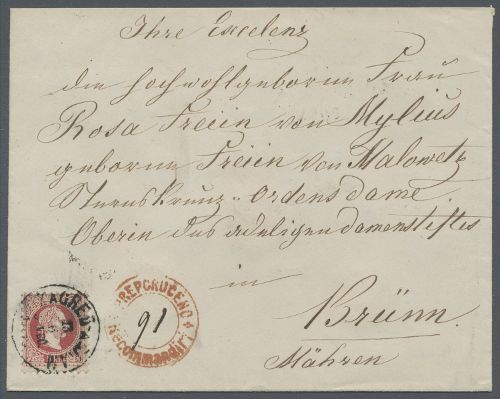 Ihre Excelenz
die hochwohlgeborne Frau
Rosa Freiin von Mylius
geborne Freiin von Malowetz
Sternskreuz-Ordensdame
Oberin des adeligen Damenstiftes
in
Brünn.
Mähren
ZAGREB
PREPORUČENO
91
Recommandirt